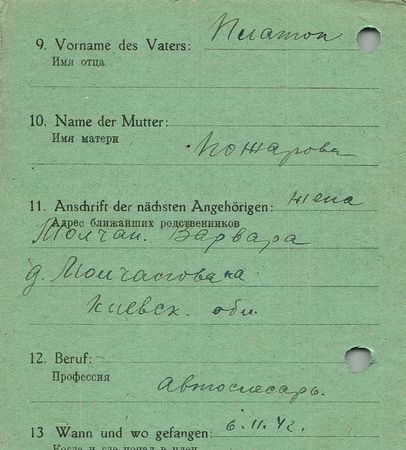 9. Vorname des Vaters: Платон
Имя отца
10. Name der Mutter:
Имя матери
Пожарова
11. Anschrift der nächsten Angehörigen: жена
Адрес ближайших родственников
Молчан. Варвара
д.
Киевск. обл.
12. Beruf:
Профессия
автослесарь.
13 Wann und wo gefangen: 6.11.42.
Когда и где попал в плен